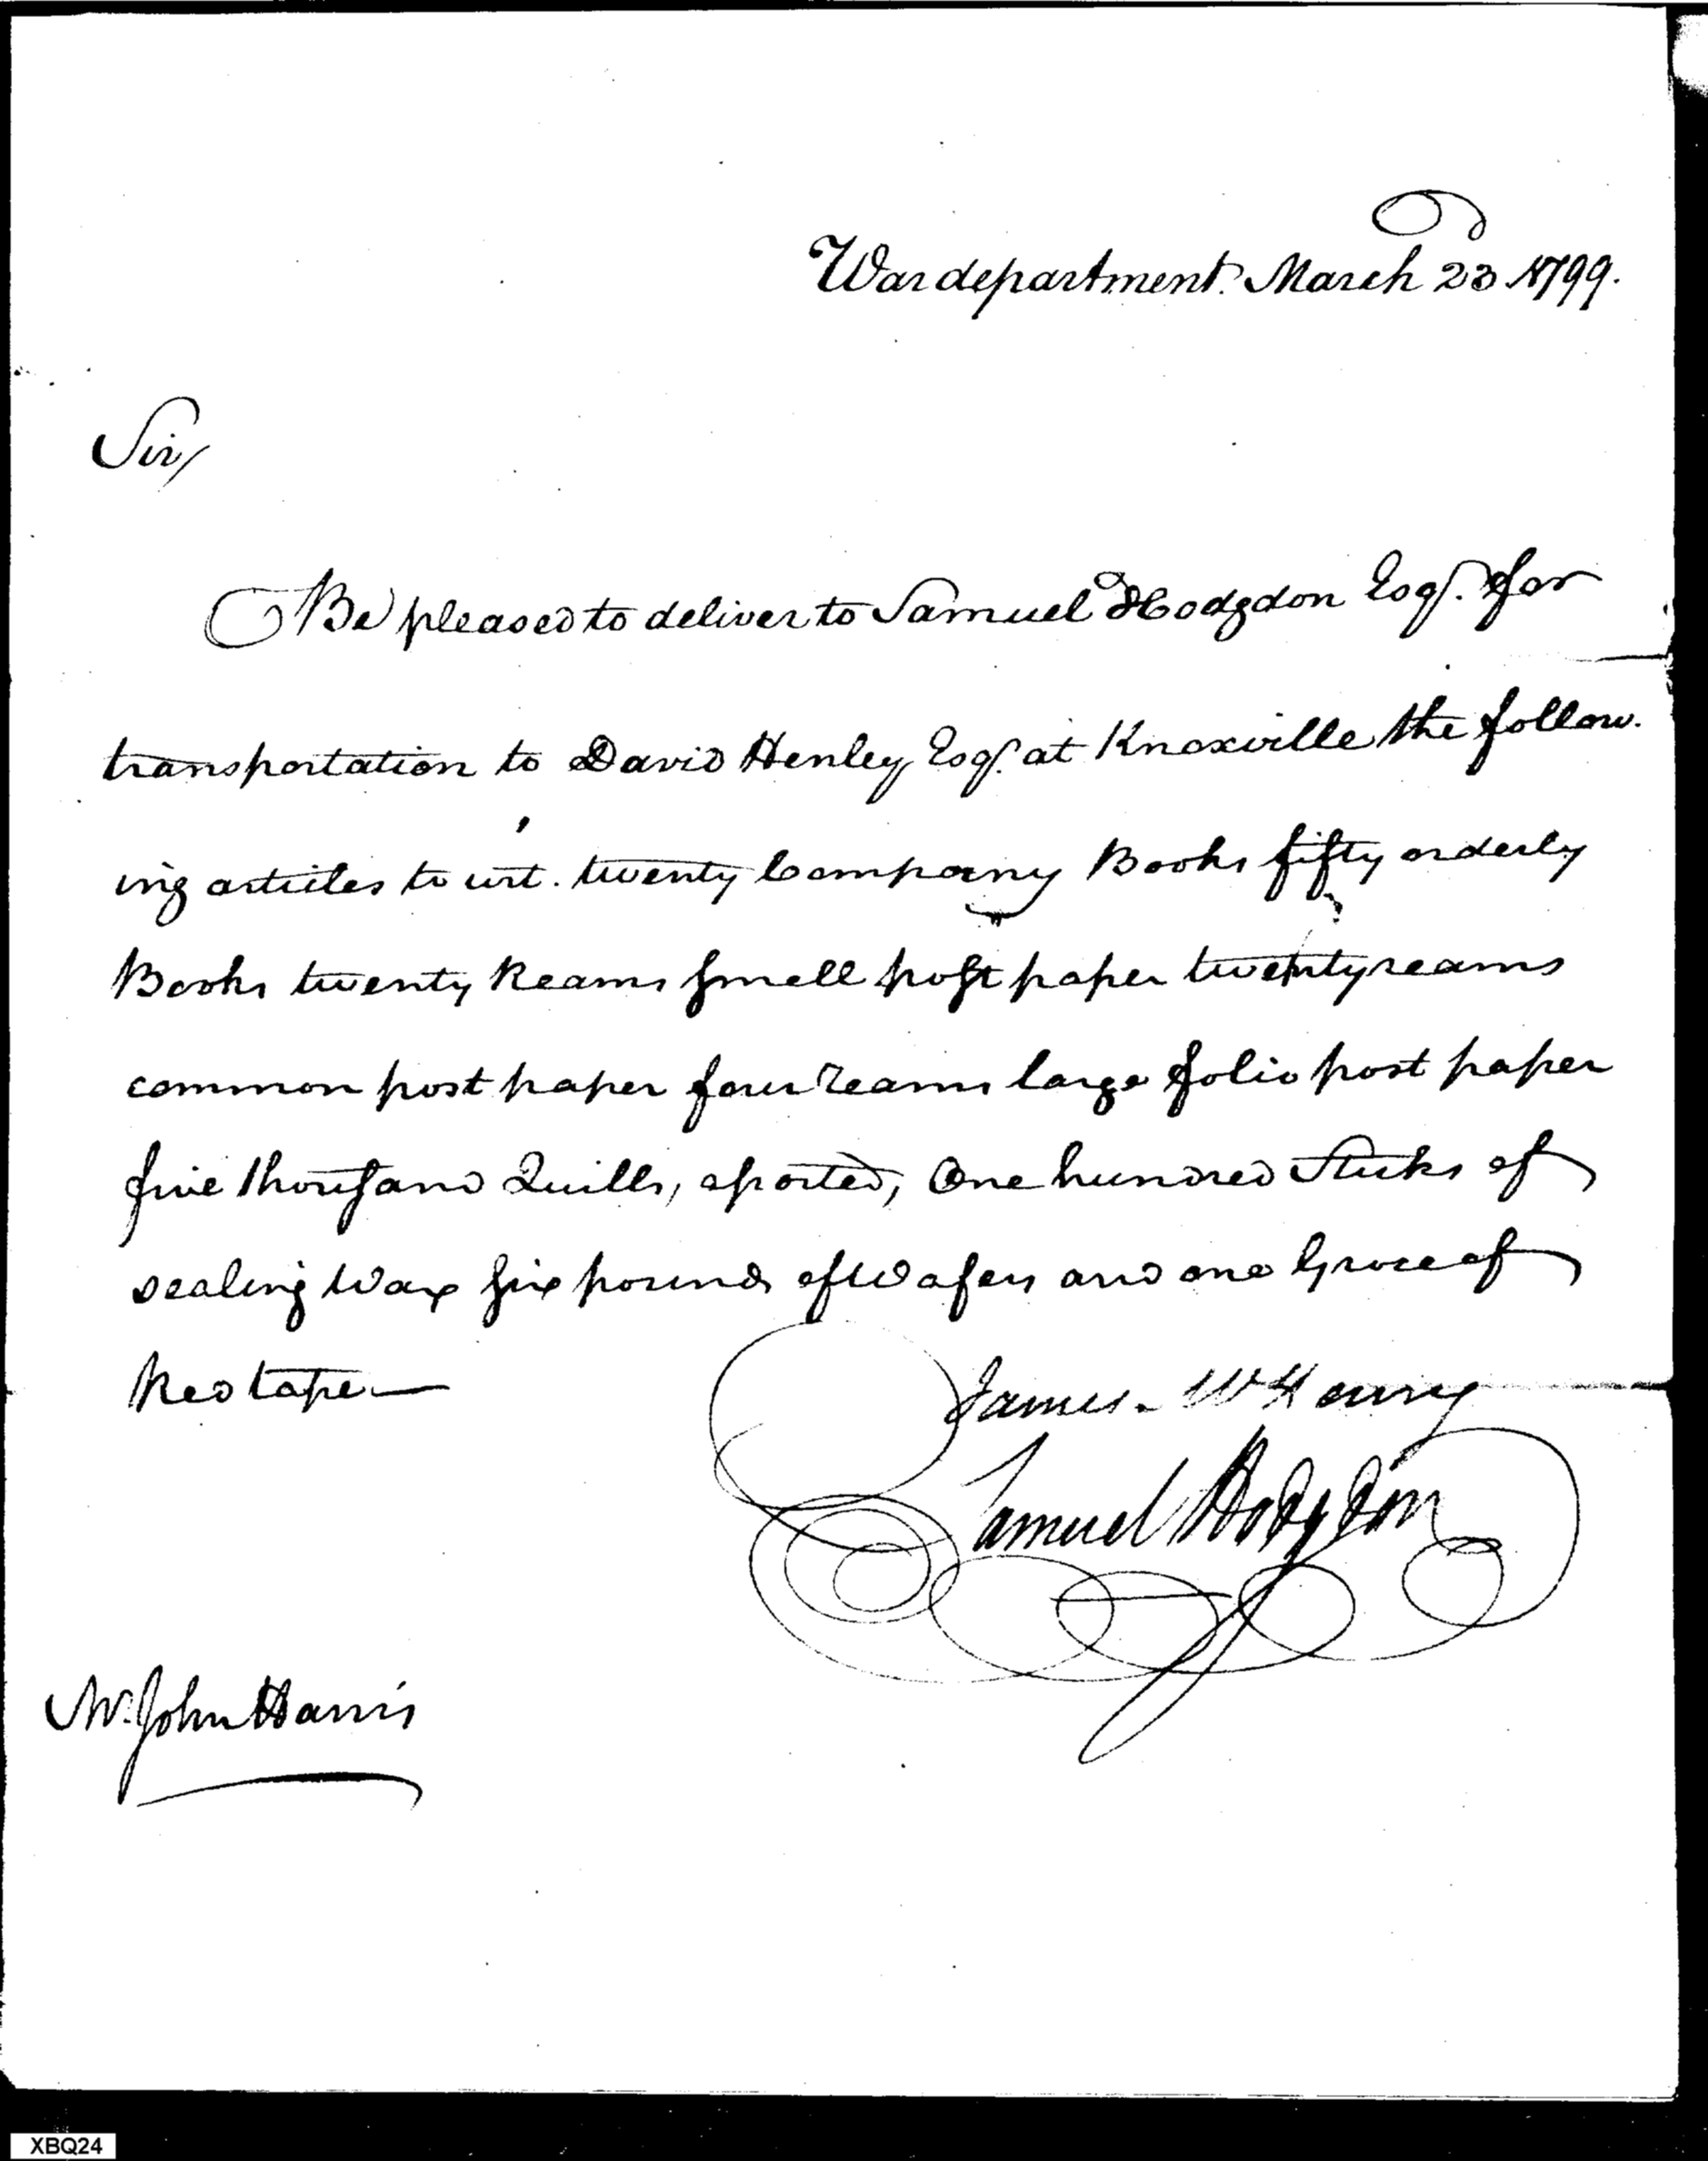 War department. March 23 1799.
Sir,
Be pleased to deliver to Samuel Hodgdon Esqr. for
transportation to David Henley Esqr. at Knoxville the follow-
ing articles to wit. twenty Company Books fifty orderly
Books twenty Reams small post paper twenty reams
common post paper four reams large folio post paper
five thousand Quills, assorted, One hundred Sticks of
sealing Wax six pounds of Wafers and one Groce of
Red tape
James McHenry
Samuel Hodgdon
Mr. John Harris
XBQ24